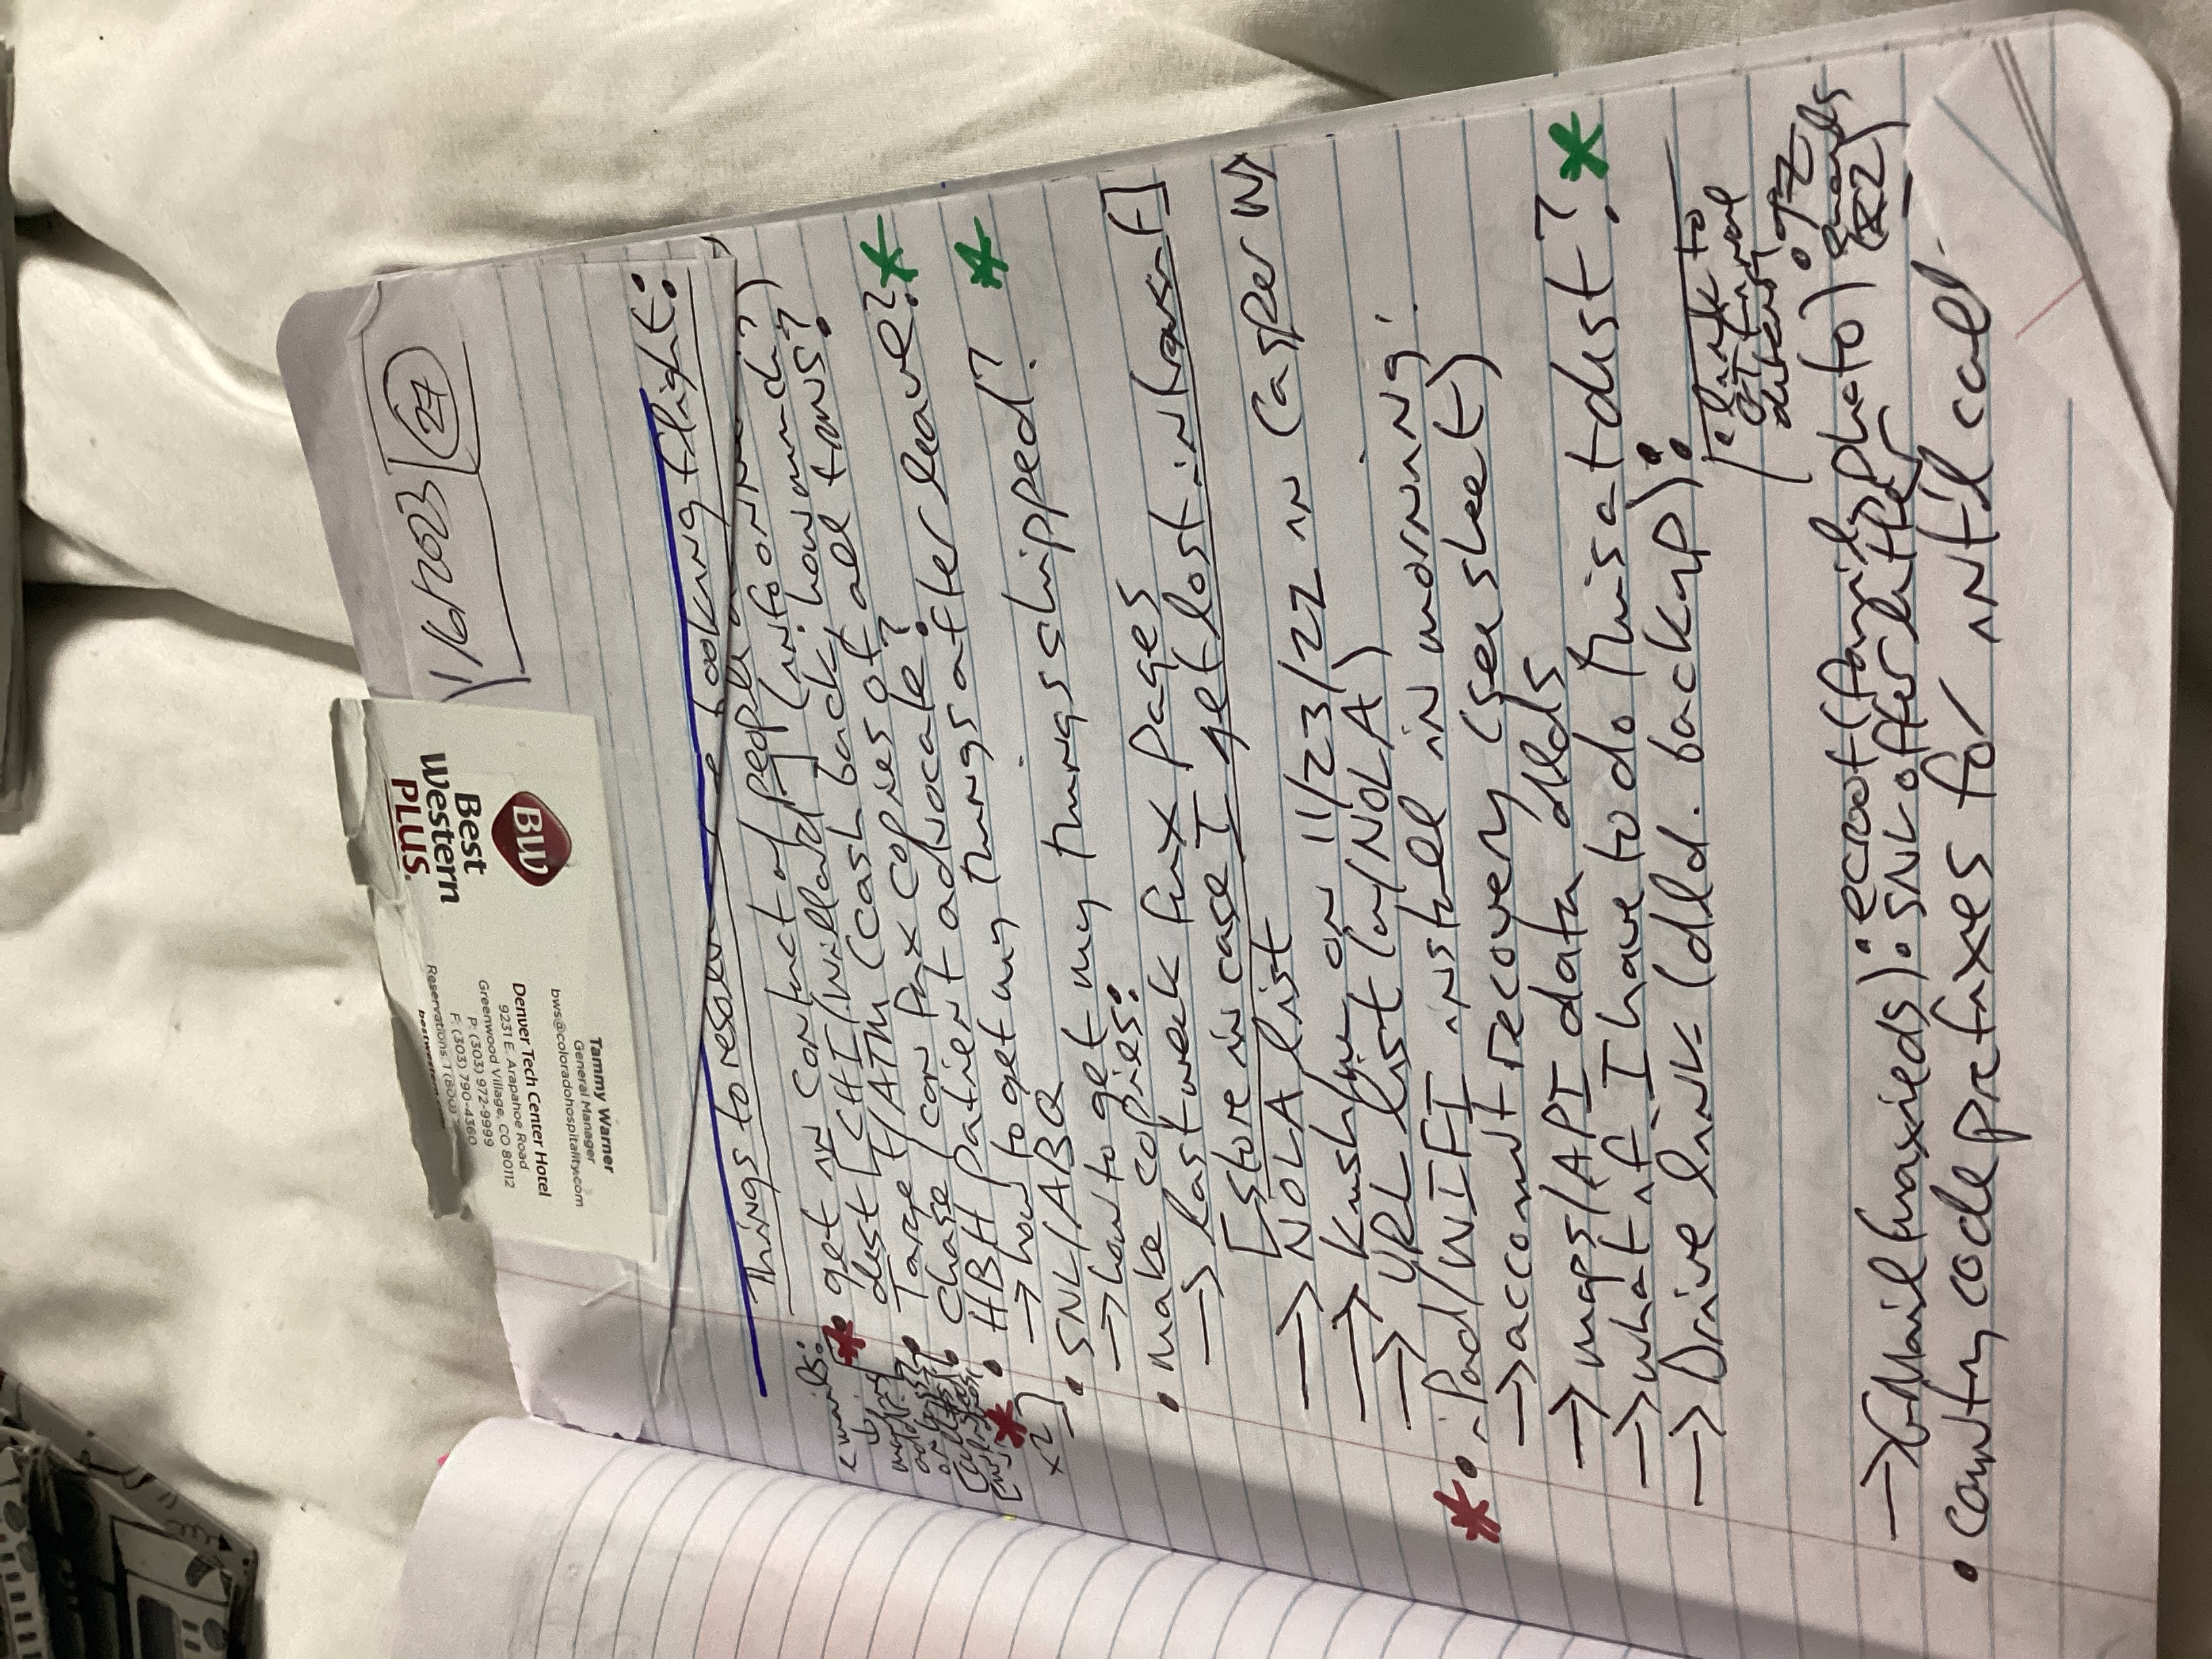 1/6/2023 27
Best
Western
PLUS.
BW
Tammy Warner
General Manager
bws@coloradohospitality.com
Denver Tech Center Hotel
9231 E. Arapahoe Road
Greenwood Village, CO 80112
P. (303) 972-9999
F. (303) 790-4360
Reservations 1 (800)
bestwestern.com
Things to booking flight:
• get in contact w/ people
dest [CHI/Willard] (info
• Target/ATM (cash back, how much?)
• Chase/can fax copies of all trans?
• HBH patient advocate?
→ how to get my things after leave?
• SNL/ABQ
→ how to get my things shipped?
• make copies:
→ last week fax pages
[store in case I get lost in transit]
→ NOLA list
→ Kush/me on 11/23/22 in Casper WY
→ URL list (w/NOLA)
• iPad/WIFI install in morning:
→ account recovery (see sheet)
→ maps/API data dlds
→ what if I have to do this at dest?
→ Drive link (dld. backup):
• link to
GT
→ GMail (maxieds): • ecroot (family photo)
• SNL offer letter
(x2)
• country code prefixes for int'l call
emails:
↓
x2]